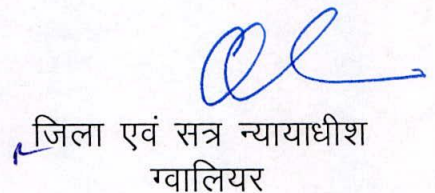 जिला एवं सत्र न्यायाधीश
ग्वालियर